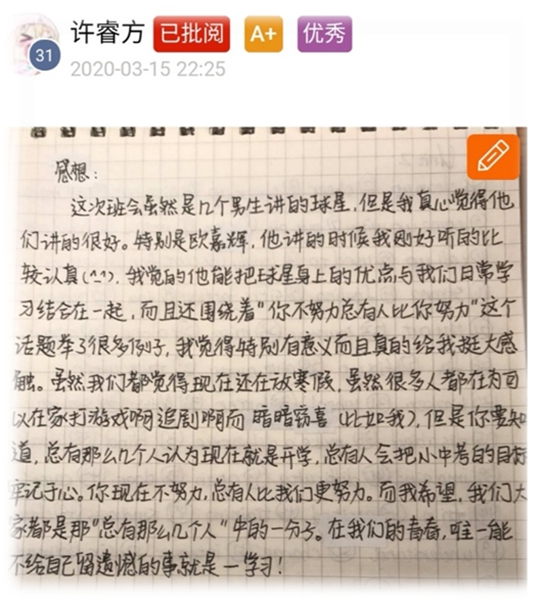 许睿方 已批阅 A+ 优秀
31
2020-03-15 22:25
感想:
这次班会虽然是几个男生讲的球星,但是我真心觉得他
们讲的很好。特别是欧嘉辉,他讲的时候我刚好听的比
较认真(^^),我觉的他能把球星身上的优点与我们日常学
习结合在一起,而且还围绕着“你不努力总有人比你努力”这个
话题举了很多例子,我觉得特别有意义而且真的给我挺大感
触。虽然我们都觉得现在还在放寒假,虽然很多人都在为可
以在家打游戏啊追剧啊而暗暗窃喜(比如我),但是你要知
道,总有那么几个人认为现在就是开学,总有人会把小中考的目标
牢记于心。你现在不努力,总有人比我们更努力。而我希望,我们大
家都是那“总有那么几个人”中的一分子。在我们的青春,唯一能
不给自己留遗憾的事就是一学习!